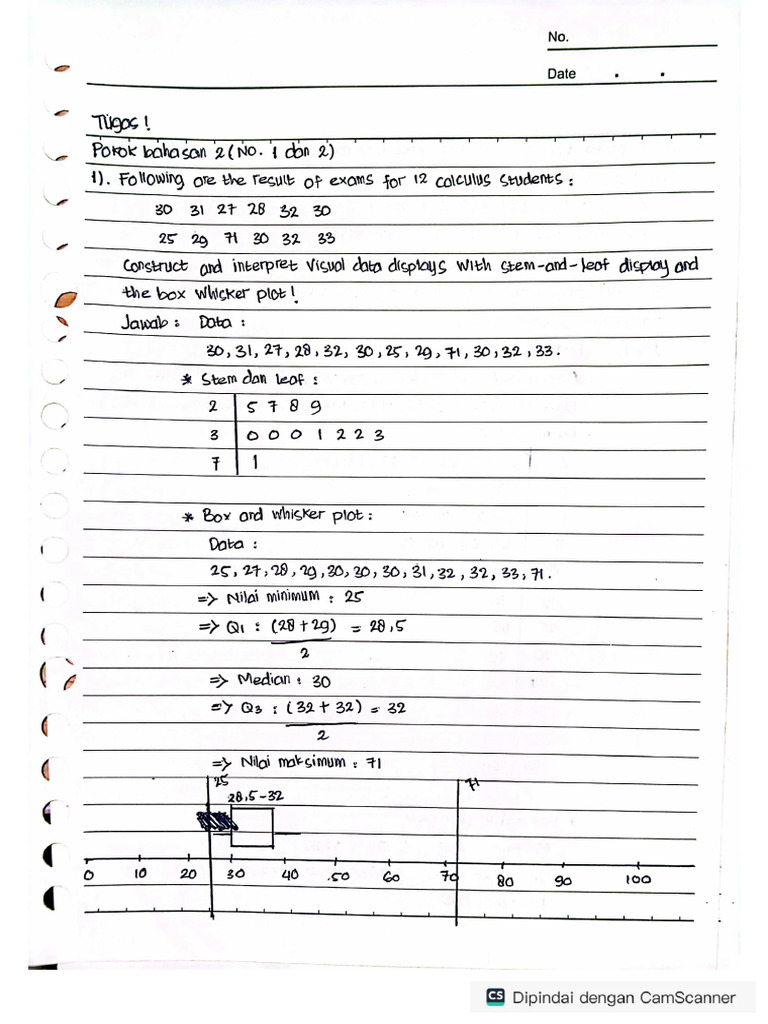 No.
Date . .
Tugas!
Pokok bahasan 2 (No. 1 dan 2)
1). Following are the result of exams for 12 calculus students:
30 31 27 28 32 30
25 29 71 30 32 33
Construct and interpret visual data displays with stem-and-leaf display and
the box whisker plot!
Jawab: Data:
30, 31, 27, 28, 32, 30, 25, 29, 71, 30, 32, 33.
* Stem dan leaf:
2 | 5 7 8 9
3 | 0 0 0 1 2 2 3
7 | 1
* Box and whisker plot:
Data:
25, 27, 28, 29, 30, 30, 30, 31, 32, 32, 33, 71.
=> Nilai minimum: 25
=> Q1: (28+29) = 28,5
2
=> Median: 30
=> Q3: (32+32) = 32
2
=> Nilai maksimum: 71
25 71
28,5-32
0 10 20 30 40 50 60 70 80 90 100
CS Dipindai dengan CamScanner